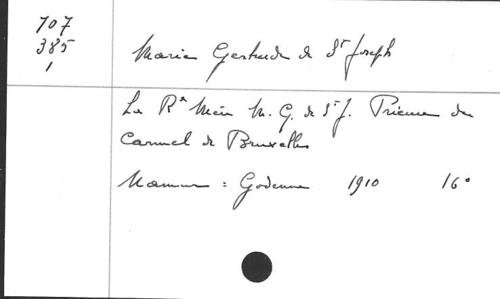 707
385
1
Marie Gertrude de St Joseph
La Rde Mère M. G. de St J. Prieure du
Carmel de Bruxelles
Namur : Godenne 1910 16°